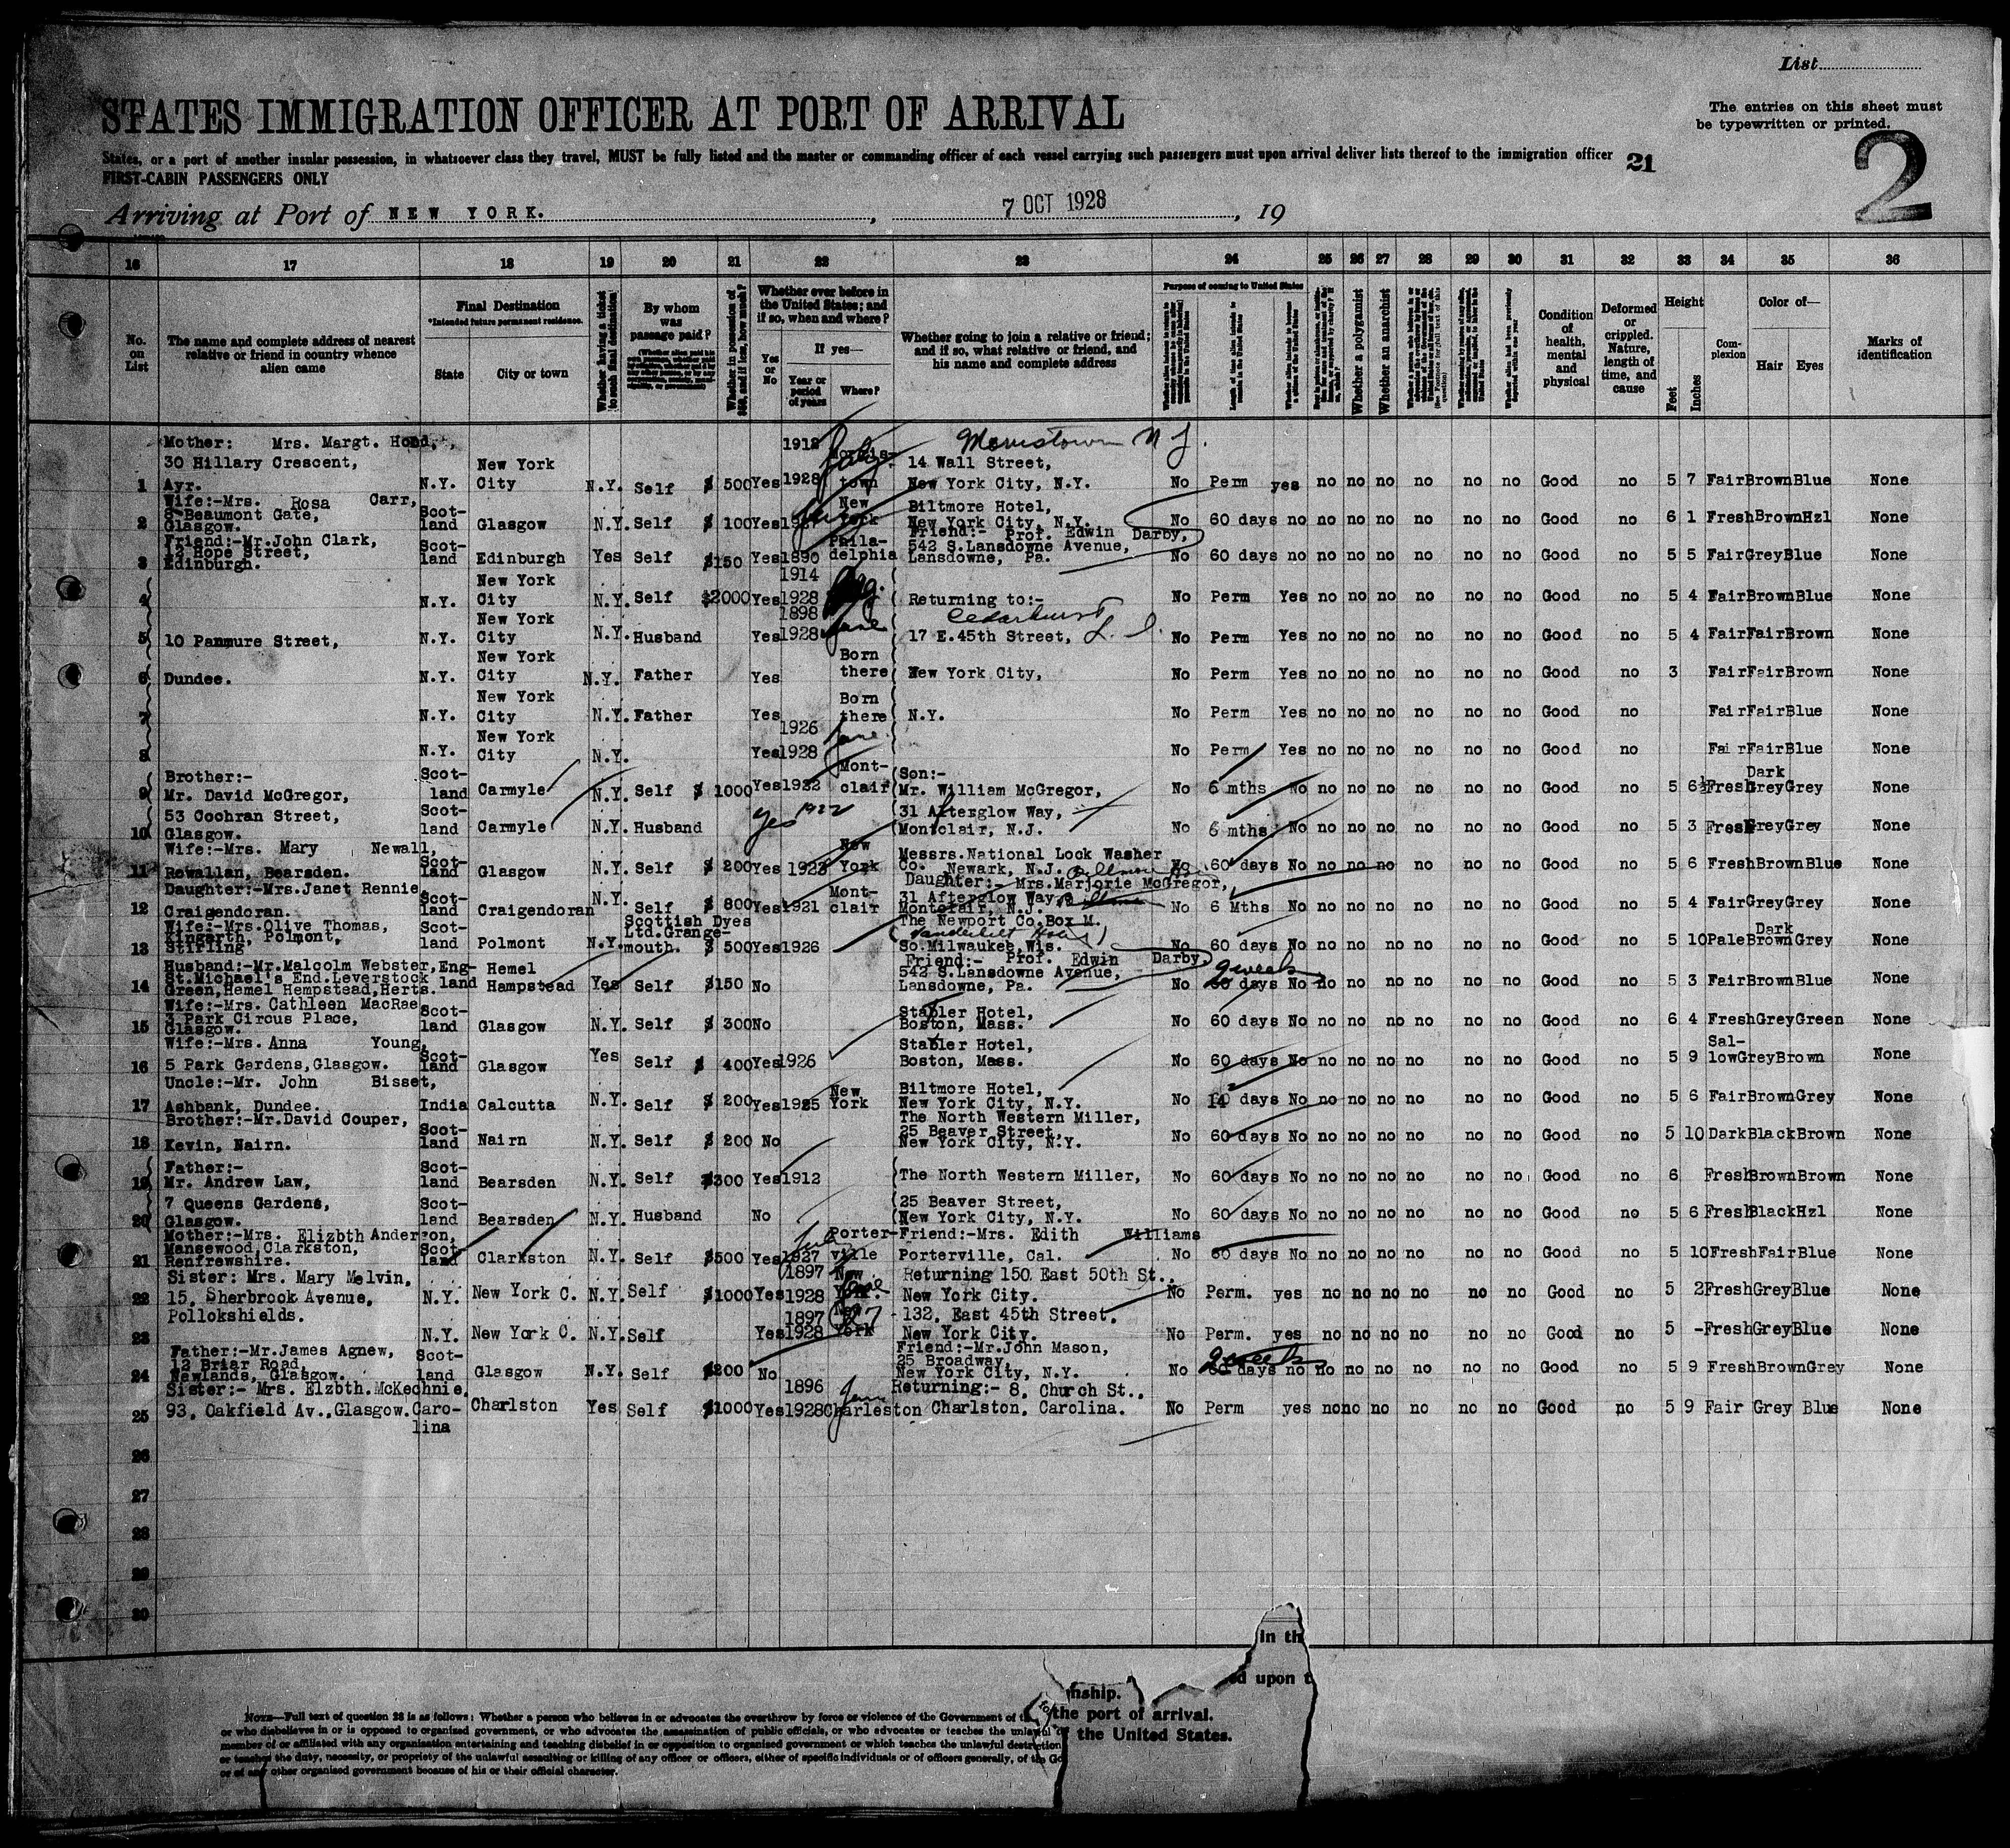 List
STATES IMMIGRATION OFFICER AT PORT OF ARRIVAL
The entries on this sheet must
be typewritten or printed.
States, or a port of another insular possession, in whatsoever class they travel, MUST be fully listed and the master or commanding officer of each vessel carrying such passengers must upon arrival deliver lists thereof to the immigration officer
21
2
FIRST-CABIN PASSENGERS ONLY
Arriving at Port of NEW YORK. , 7 OCT 1928 , 19
16 17 18 19 20 21 22 23 24 25 26 27 28 29 30 31 32 33 34 35 36
No. on List
The name and complete address of nearest relative or friend in country whence alien came
Final Destination
*Intended future permanent residence.
State
City or town
Whether having a ticket to such final destination
By whom was passage paid?
Whether in possession of $50, and if less, how much?
Whether ever before in the United States; and if so, when and where?
Yes or No
If yes—
Year or period of years
Where?
Whether going to join a relative or friend; and if so, what relative or friend, and his name and complete address
Purpose of coming to United States
Length of time alien intends to remain in the United States
Whether a polygamist
Whether an anarchist
Condition of health, mental and physical
Deformed or crippled. Nature, length of time, and cause
Height
Feet
Inches
Complexion
Color of—
Hair
Eyes
Marks of identification
Mother: Mrs. Margt. Hood, 1912 Morristown N J.
30 Hillary Crescent, New York Morris- 14 Wall Street,
1 Ayr. N.Y. City N.Y. Self $ 500 Yes 1928 town New York City, N.Y. No Perm yes no no no no no no Good no 5 7 Fair Brown Blue None
Wife:-Mrs. Rosa Carr, New Biltmore Hotel,
8 Beaumont Gate, Scot-
2 Glasgow. land Glasgow N.Y. Self $ 100 Yes York New York City, N.Y. No 60 days no no no no no no no Good no 6 1 Fresh Brown Hzl None
Friend:-Mr.John Clark, Scot- Phila- Friend:- Prof. Edwin Darby,
Hope Street, 542 S.Lansdowne Avenue,
3 Edinburgh. land Edinburgh Yes Self $150 Yes 1890 delphia Lansdowne, Pa. No 60 days no no no no no no no Good no 5 5 Fair Grey Blue None
New York 1914
4 N.Y. City N.Y. Self $2000 Yes 1928 Returning to:- No Perm Yes no no no no no no Good no 5 4 Fair Brown Blue None
New York 1898 Cedarhurst
5 10 Panmure Street, N.Y. City N.Y. Husband Yes 1928 June 17 E.45th Street, L. I. No Perm Yes no no no no no no Good no 5 4 Fair Fair Brown None
New York Born
6 Dundee. N.Y. City N.Y. Father Yes there New York City, No Perm Yes no no no no no no Good no 3 Fair Fair Brown None
New York Born
7 N.Y. City N.Y. Father Yes there N.Y. No Perm Yes no no no no no no Good no Fair Fair Blue None
New York 1926 June
8 N.Y. City N.Y. Yes 1928 No Perm Yes no no no no no no Good no Fair Fair Blue None
Brother:- Scot- Mont- Son:- Dark
9 Mr. David McGregor, land Carmyle N.Y. Self $ 1000 Yes 1922 clair Mr. William McGregor, No 6 mths No no no no no no no Good no 5 6½ Fresh Grey Grey None
53 Cochran Street, Scot- Yes 1922 31 Afterglow Way,
10 Glasgow. land Carmyle N.Y. Husband Montclair, N.J. No 6 mths No no no no no no no Good no 5 3 Fresh Grey Grey None
Wife:-Mrs. Mary Newall, Scot- New Messrs.National Lock Washer
11 Rowallan, Bearsden. land Glasgow N.Y. Self $ 200 Yes 1923 York Co. Newark, N.J. No 60 days No no no no no no no Good no 5 6 Fresh Brown Blue None
Daughter:-Mrs.Janet Rennie, Scot- Mont- Daughter:- Mrs.Marjorie McGregor,
31 Afterglow Way,
12 Craigendoran. land Craigendoran N.Y. Self $ 800 Yes 1921 clair Montclair, N.J. No 6 Mths No no no no no no no Good no 5 4 Fair Grey Grey None
Wife:-Mrs.Olive Thomas, Scot- Scottish Dyes The Newport Co.Box M.
Kingarth, Polmont, Ltd.Grange- (Vanderbilt Hotel) Dark
13 Stirling land Polmont N.Y. mouth. $ 500 Yes 1926 So.Milwaukee, Wis. No 60 days No no no no no no no Good no 5 10 Pale Brown Grey None
Husband:-Mr.Malcolm Webster, Eng- Hemel Friend:- Prof. Edwin Darby.
St.Michael's End.Leverstock 542 S.Lansdowne Avenue, 9 weeks
14 Green,Hemel Hempstead,Herts. land Hampstead Yes Self $150 No Lansdowne, Pa. No 60 days No no no no no no no Good no 5 3 Fair Brown Blue None
Wife:-Mrs. Cathleen MacRae Scot- Statler Hotel,
3 Park Circus Place,
15 Glasgow. land Glasgow N.Y. Self $ 300 No Boston, Mass. No 60 days No no no no no no no Good no 6 4 Fresh Grey Green None
Wife:-Mrs. Anna Young, Scot- Statler Hotel, Sal-
16 5 Park Gardens,Glasgow. land Glasgow Yes Self $ 400 Yes 1926 Boston, Mass. No 60 days No no no no no no no Good no 5 9 low Grey Brown None
Uncle:-Mr. John Bisset, New Biltmore Hotel,
17 Ashbank, Dundee. India Calcutta N.Y. Self $ 200 Yes 1925 York New York City, N.Y. No 14 days No no no no no no no Good no 5 6 Fair Brown Grey None
Brother:-Mr.David Couper, Scot- The North Western Miller,
25 Beaver Street,
18 Kevin, Nairn. land Nairn N.Y. Self $ 200 No New York City, N.Y. No 60 days No no no no no no no Good no 5 10 Dark Black Brown None
Father:- Scot-
19 Mr. Andrew Law, land Bearsden N.Y. Self $300 Yes 1912 The North Western Miller, No 60 days No no no no no no no Good no 6 Fresh Brown Brown None
7 Queens Gardens, Scot- 25 Beaver Street,
20 Glasgow. land Bearsden N.Y. Husband No New York City, N.Y. No 60 days No no no no no no no Good no 5 6 Fresh Black Hzl None
Mother:-Mrs. Elizbth Anderson, Porter- Friend:-Mrs. Edith Williams
Mansewood,Clarkston, Scot-
21 Renfrewshire. land Clarkston N.Y. Self $500 Yes 1927 ville Porterville, Cal. No 60 days No no no no no no no Good no 5 10 Fresh Fair Blue None
Sister: Mrs. Mary Melvin, 1897 New Returning 150 East 50th St.,
22 15, Sherbrook Avenue, N.Y. New York C. N.Y. Self $1000 Yes 1928 York. New York City. No Perm. yes no no no no no no Good no 5 2 Fresh Grey Blue None
Pollokshields. 1897 New 132, East 45th Street,
23 N.Y. New York C. N.Y. Self Yes 1928 York New York City. No Perm. yes no no no no no no Good no 5 - Fresh Grey Blue None
Father:-Mr.James Agnew, Scot- Friend:-Mr.John Mason,
12 Briar Road, 25 Broadway, 2 weeks
24 Newlands, Glasgow. land Glasgow N.Y. Self $200 No New York City, N.Y. No 60 days no no no no no no no Good no 5 9 Fresh Brown Grey None
Sister:- Mrs. Elzbth.McKechnie, 1896 June Returning:- 8, Church St.,
25 93, Oakfield Av.,Glasgow. Caro- Charlston Yes Self $1000 Yes 1928 Charleston Charlston, Carolina. No Perm yes no no no no no no Good no 5 9 Fair Grey Blue None
lina
26
27
28
29
30
In th
ed upon t
nship.
the port of arrival.
the United States.
NOTE—Full text of question 28 is as follows: Whether a person who believes in or advocates the overthrow by force or violence of the Government of
or who disbelieves in or is opposed to organized government, or who advocates the assassination of public officials, or who advocates or teaches the unlawful
member of or affiliated with any organization entertaining and teaching disbelief in or opposition to organized government or which teaches the unlawful destruction
or teaches the duty, necessity, or propriety of the unlawful assaulting or killing of any officer or officers, either of specific individuals or of officers generally, of the Go
or of any other organized government because of his or their official character.